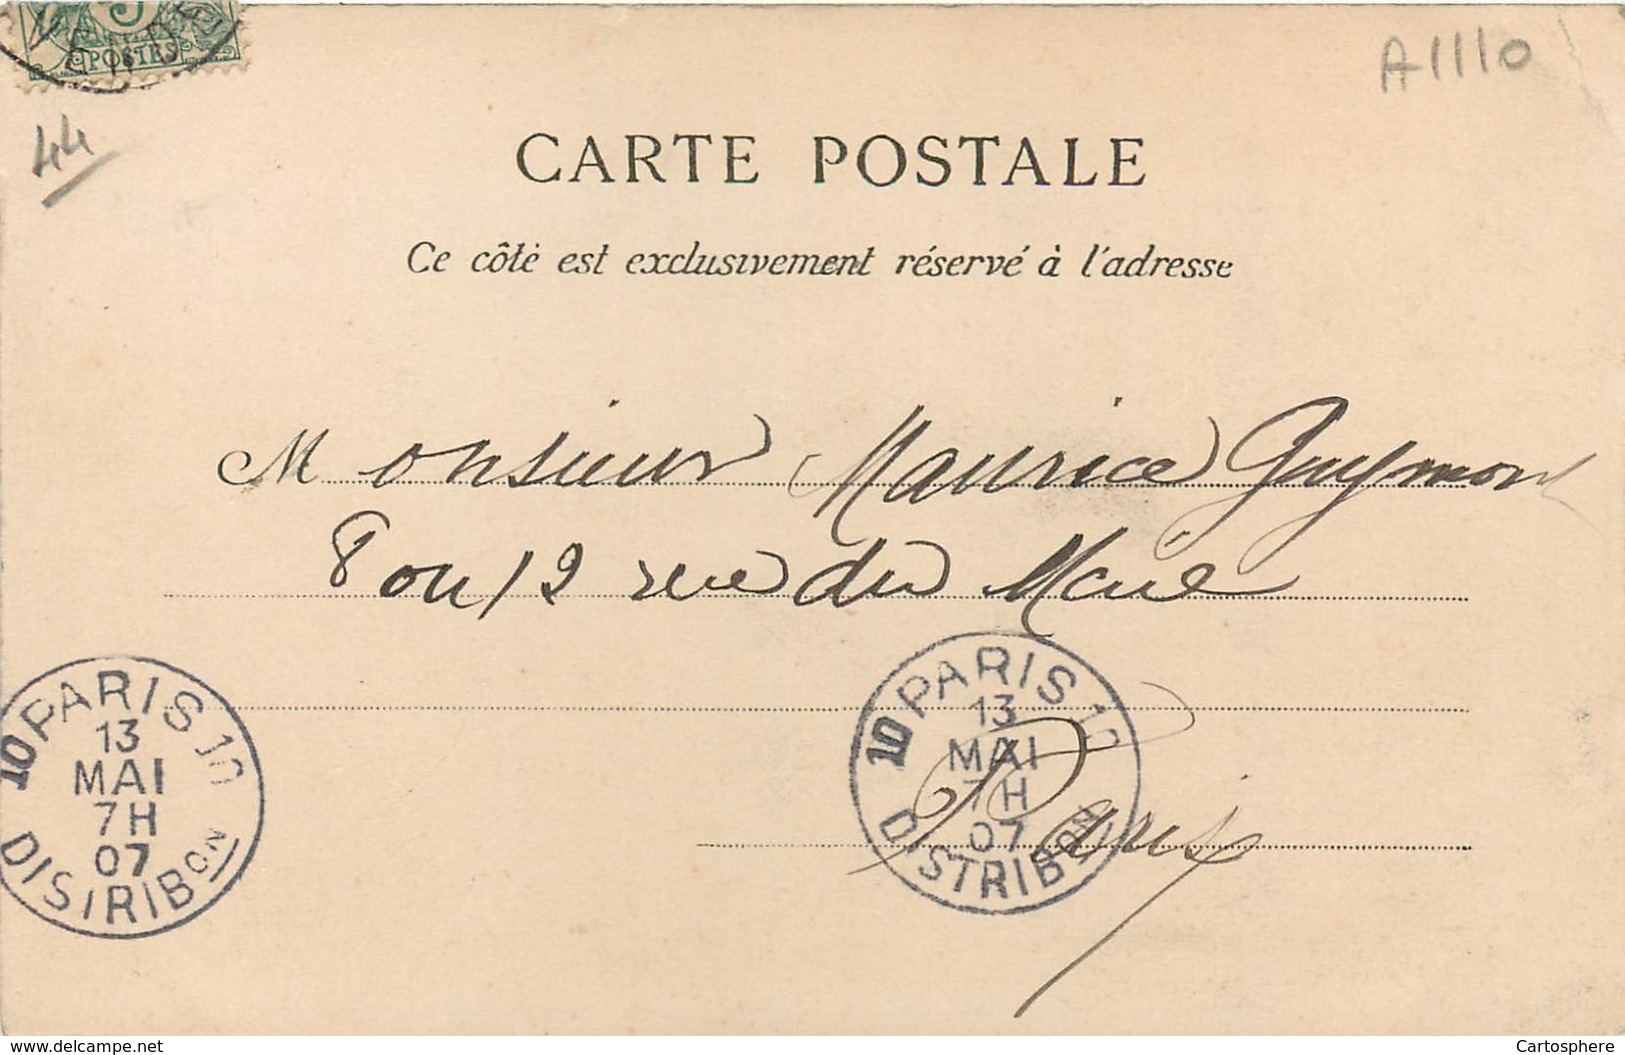 5
POSTES
A1110
44
CARTE POSTALE
Ce côté est exclusivement réservé à l'adresse
Monsieur Maurice Guymont
8 ou 12 rue du Maine
Paris
10 PARIS 10
13
MAI
7H
07
DISTRIBON
10 PARIS 10
13
MAI
7H
07
DISTRIBON
www.delcampe.net
Cartosphere